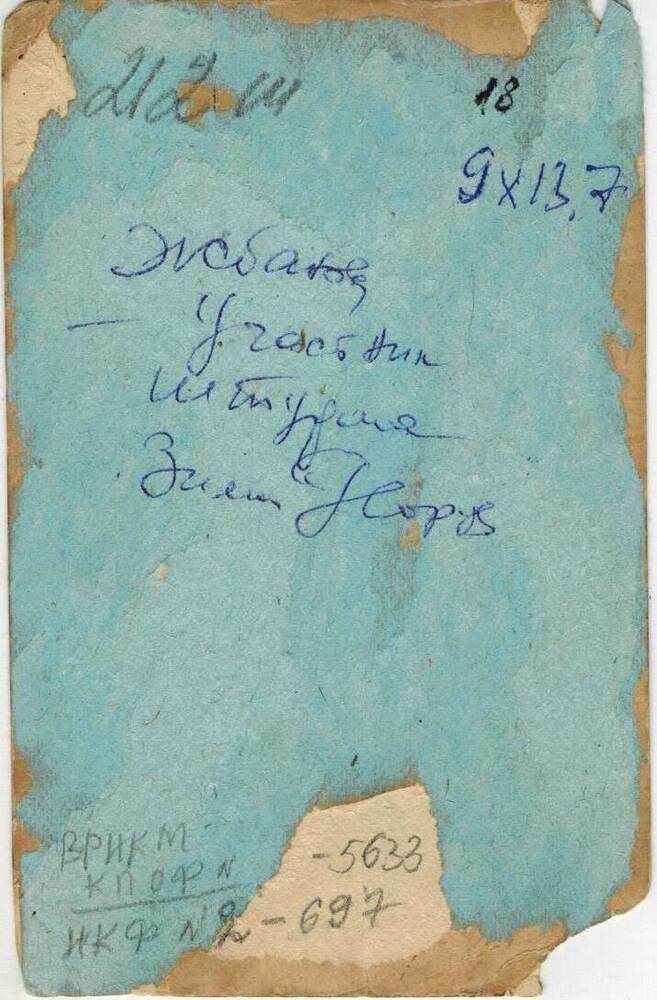 212 ш
18
9х13,7
Жбанов
— Участник
штурма
Зимн. Дворц
ВРИКМ
КП ОФ N -5633
НКФ № 2-697